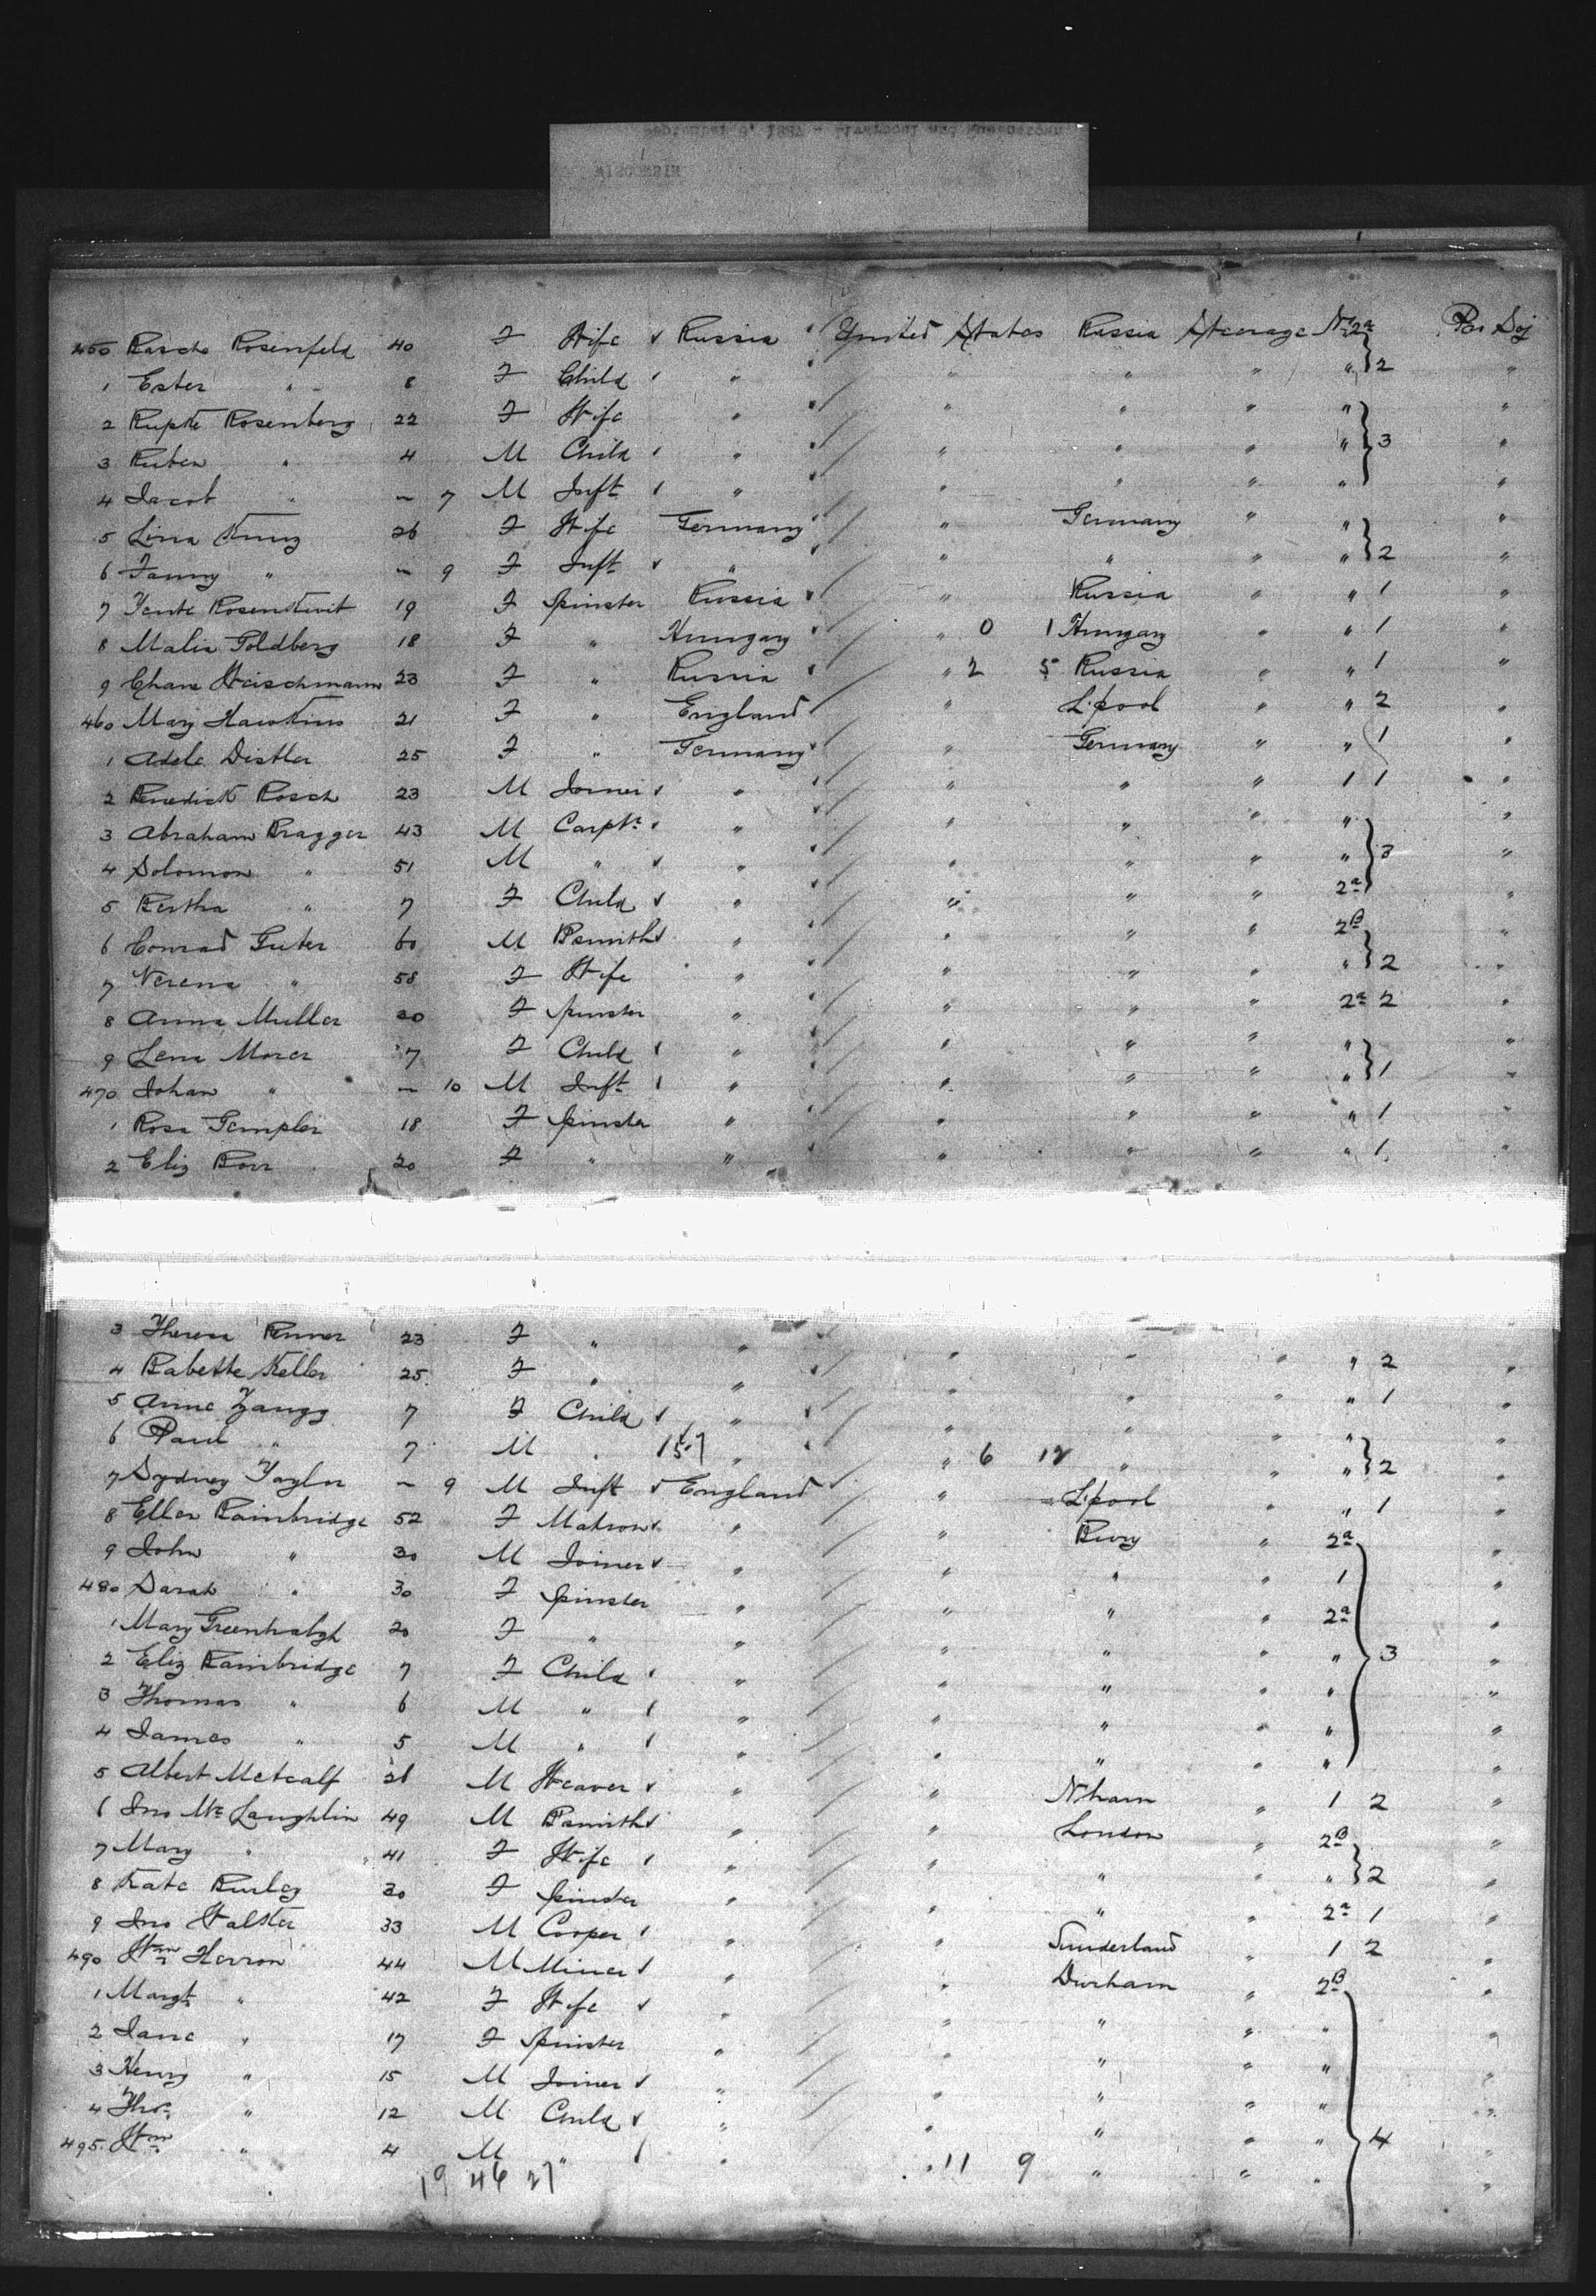 450 Rosenfeld 40 F Wife Russia United States Russia Steerage No 2a Pro Soj
1 Ester " 8 F Child " " " " " } 2 "
2 Rosenberg 22 F Wife " " " " " "
3 Ruben " 4 M Child " " " " " } 3 "
4 Jacob " - 7 M Inft " " " " " "
5 Lina Kunz 26 F Wife Germany " Germany " " "
6 Fanny " - 9 F Inft " " " " " } 2 "
7 Yente 19 F Spinster Russia " Russia " " 1 "
8 Malie Goldberg 18 F " Hungary " 0 1 Hungary " " 1 "
9 Chane 23 F " Russia " 2 5 Russia " " 1 "
460 Mary Hawkins 21 F " England " L'pool " " 2 "
1 Adele Distler 25 F " Germany " Germany " " 1 "
2 Benedick Rosch 23 M Joiner " " " " 1 1 "
3 Abraham Bragger 43 M Carptr " " " " " "
4 Solomon " 51 M " " " " " " } 3 "
5 Bertha " 7 F Child " " " " 2a "
6 Conrad Guter 60 M Bsmith " " " " 2B "
7 Verena " 58 F Wife " " " " " } 2 "
8 Anna Muller 20 F Spinster " " " " 2a 2 "
9 Lena Moser 7 F Child " " " " " "
470 Johan " - 10 M Inft " " " " " } 1 "
1 Rosa Gempler 18 F Spinster " " " " " 1 "
2 Eliz 20 F " " " " " " 1 "
3 Theresa Renner 23 F " " " " " " 2 "
4 Babette Keller 25 F " " " " " " 1 "
5 Anne Zangg 7 F Child " " " " " "
6 Paul " 7 M " 15.7 " " 6 12 " " " } 2 "
7 Sydney Taylor - 9 M Inft England " L'pool " " 1 "
8 Ellen Bainbridge 52 F Matron " " Bury " 2a "
9 John " 30 M Joiner " " " " 1 "
480 Sarah " 30 F Spinster " " " " 2a "
1 Mary Greenhalgh 20 F " " " " " " } 3 "
2 Eliz Bainbridge 7 F Child " " " " " "
3 Thomas " 6 M " " " " " " "
4 James " 5 M " " " " " " "
5 Albert Metcalf 28 M Weaver " " N'ham " 1 2 "
6 Jno McLaughlin 49 M Bsmith " " London " 2B "
7 Mary " 41 F Wife " " " " " } 2 "
8 Kate Burley 30 F Spinster " " " " 2a 1 "
9 Jno Walster 33 M Cooper " " Sunderland " 1 2 "
490 Wm Herron 44 M Miner " " Durham " 2B "
1 Margt " 42 F Wife " " " " " "
2 Jane " 17 F Spinster " " " " " "
3 Henry " 15 M Joiner " " " " " "
4 Thos " 12 M Child " " " " " } 4 "
495 Wm " 4 M " " " 11 9 " " " "
19 46 27